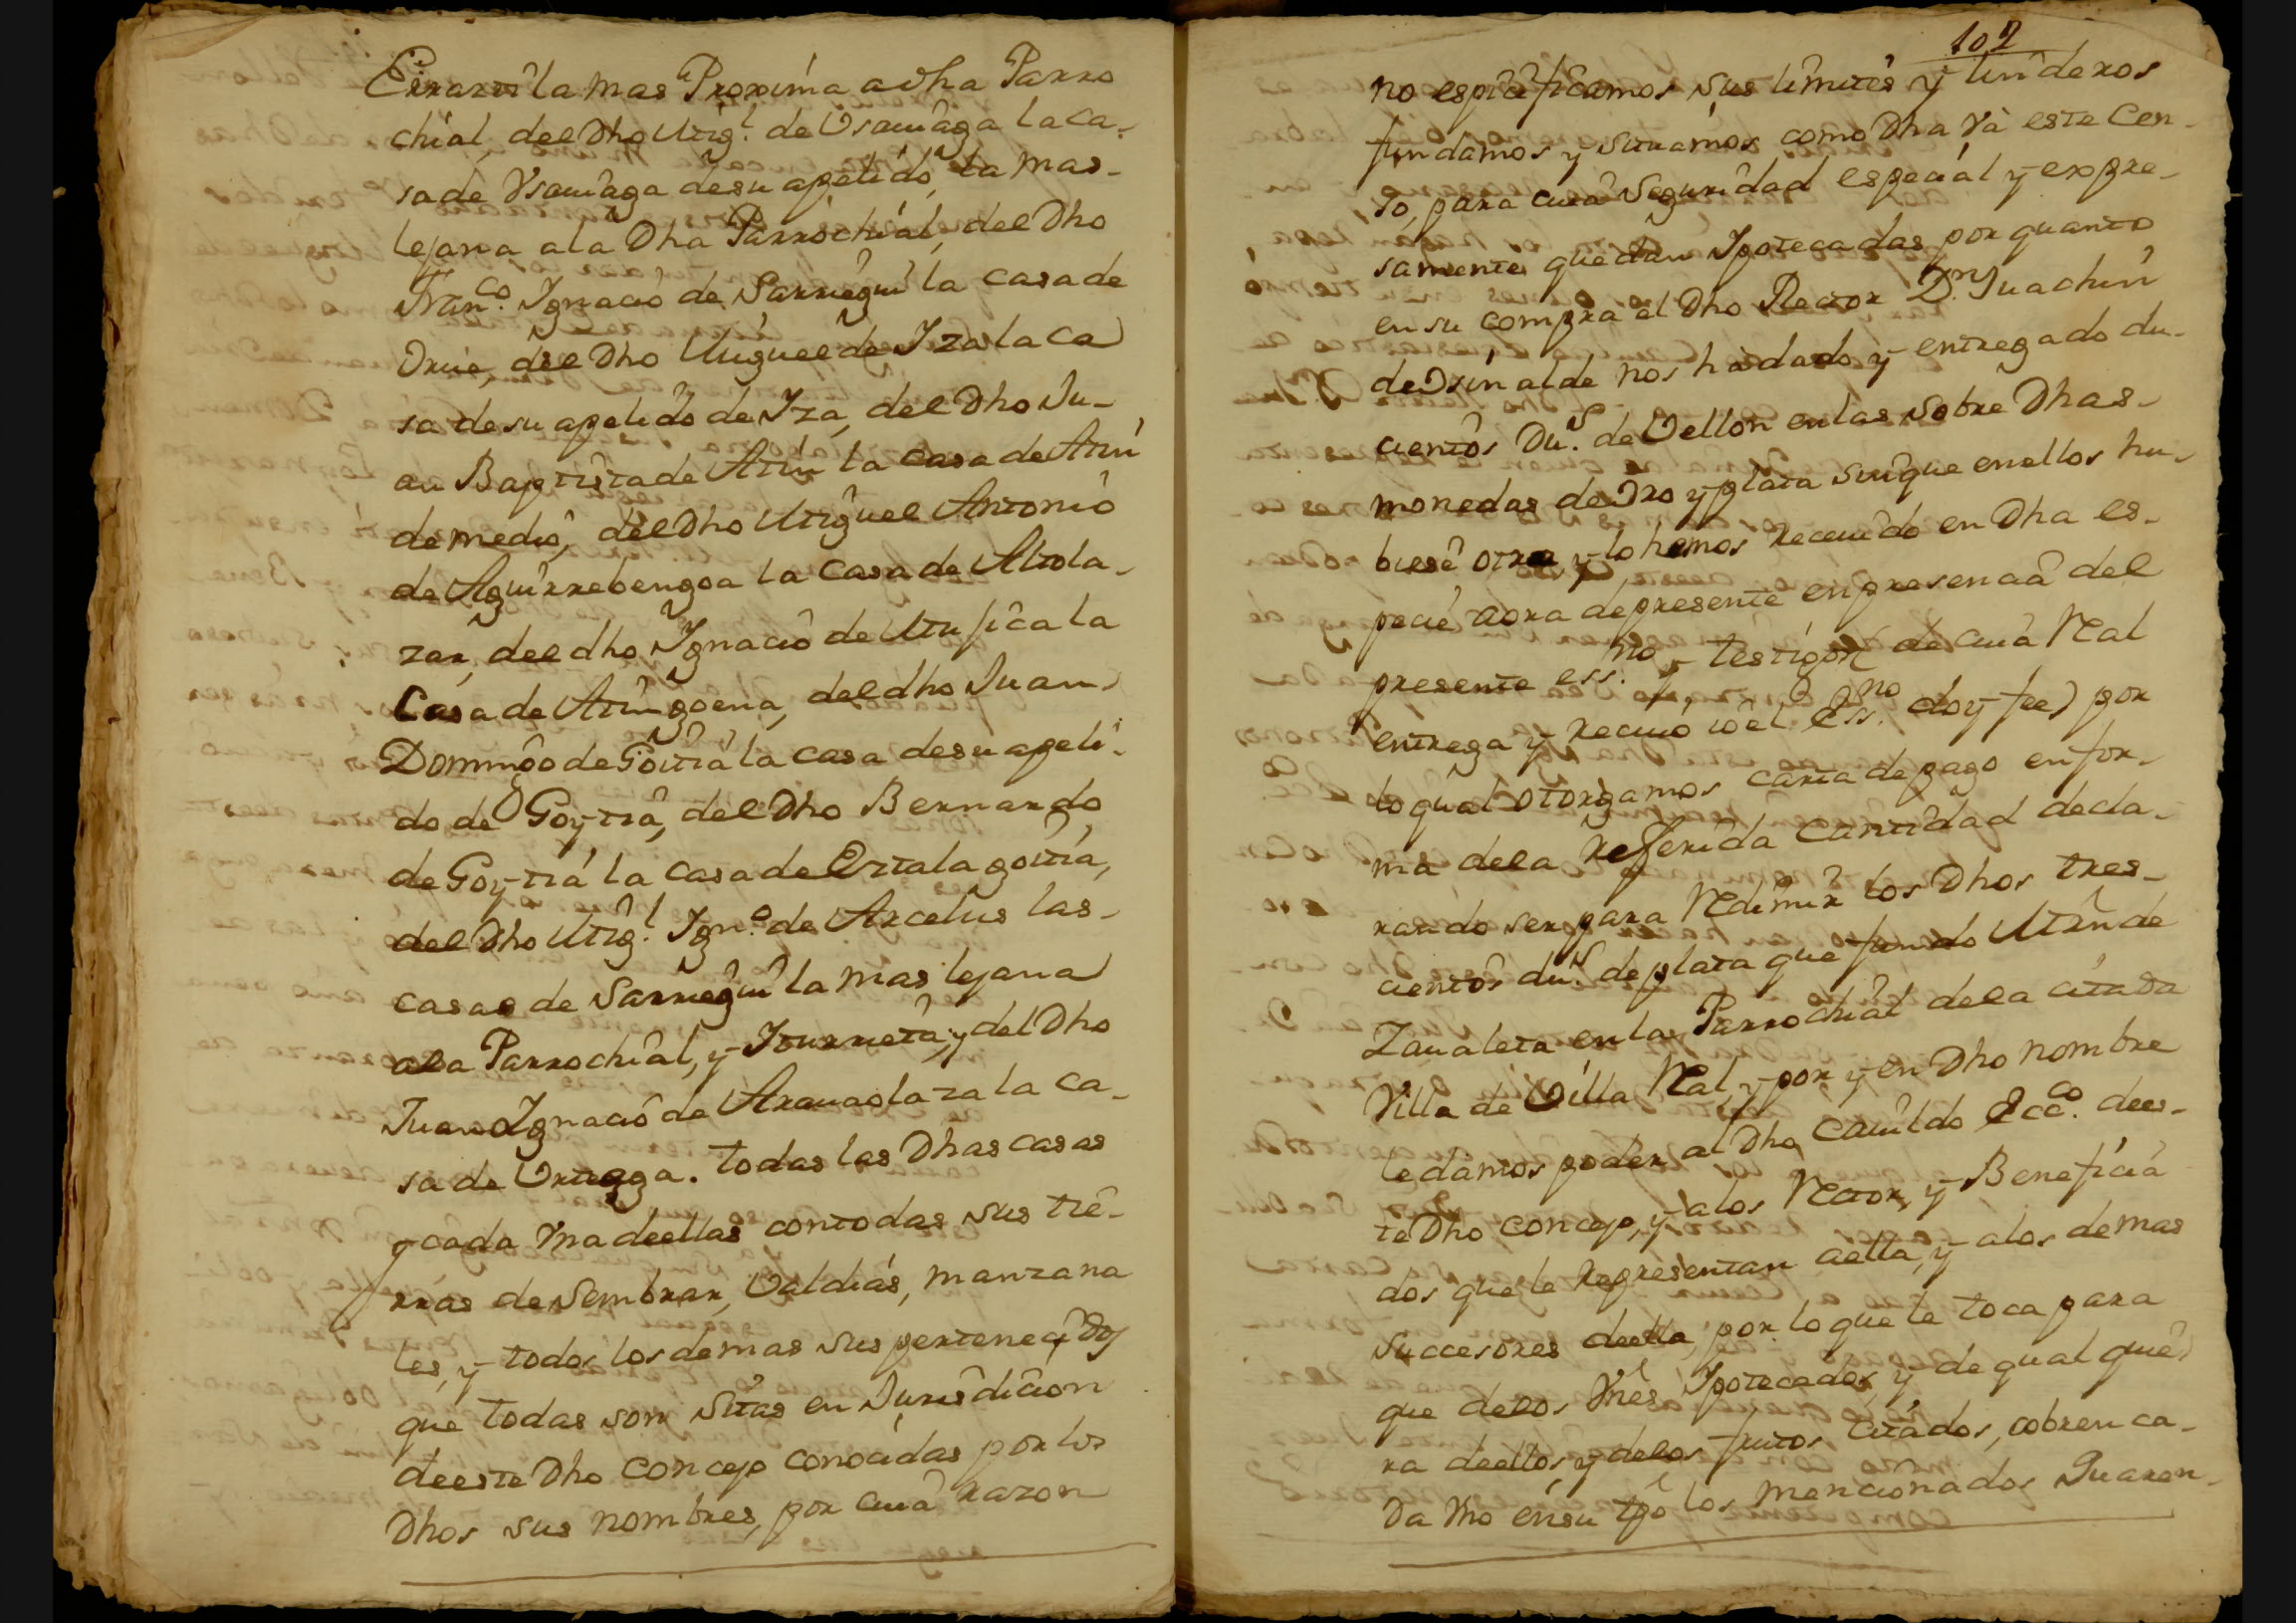 Eirazti la mas Proxima a dha Parro
chial, del Dho Mig.l de Usauiaga la ca-
sa de Vsauiaga de su apelido, la mas-
lejana a la Dha Parrochial, del Dho
Fran.co Ignacio de Sarriegui la casa de
del Dho Miguel de Iza la ca
sa de su apelido de Iza, del Dho Ju-
an Baptista de Atin la casa de Atin
de medio, del Dho Miguel Antonio
de Aguirrebengoa la casa de Altola-
zar, del dho Ignacio de Mujica la
Casa de Atingoena, del dho Juan
Domingo de Goitia la casa de su apeli-
do de Goytia, del Dho Bernardo
de Goytia la casa de Eztala goitia,
del Dho Mig.l Ign.o de Arcelus las-
casas de Sarriegui la mas lejana
a la Parrochial, y Iturrieta, y del Dho
Juan Ignacio de Araua olaza la ca-
sa de Urtegga. todas las Dhas casas
y cada Vna de ellas con todas sus tie-
rras de Sembrar, Valdias, manzana
les, y todos los demas sus perteneçidos
que todas son sitas en Jurisdicion
de este Dho concejo conocidas por los
Dhos sus nombres, por cuia razon
102
no espicificamos sus limites y linderos
fundamos y situamos como Dha Va este Cen-
so, para cuia seguridad especial y expre-
samente quedan Ipotecadas por quanto
en su compra el Dho Rector D.n Juachin
de Osinalde nos ha dado y entregado du-
cientos Du.s de Vellon en las sobre Dhas-
monedas de Oro y plata sin que en ellos hu-
biese otra y lo hemos receuido en Dha es-
pecie aora de presente en presencia del
presente ess.no y testigos de cuia Real
entrega y reciuo io el Ess.no doy fee) por
lo qual otorgamos carta de pago en for-
ma de la referida cantidad decla-
rando ser para Redimir los Dhos tres-
cientos du.s de plata que fundo Mrn de
Zaualeta en la Parrochial de la citada
Villa de Villa Real, y por y en Dho nombre
le damos poder al Dho cauildo Ecc.co de es-
te Dho concejo, y a los Rector, y Beneficia
dos que le representan a ella, y a los demas
succesores de ella, por lo que le toca para
que de los Vnes Ipotecados, y de qual quie
ra de ellos, y de los frutos citados, cobren ca-
da Año en su tpo los mencionados Quaren-